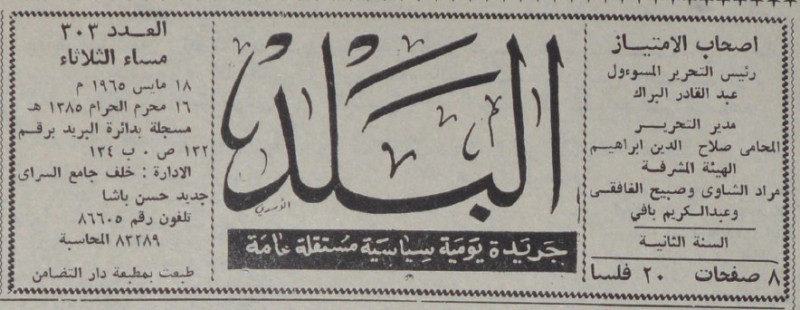 اصحاب الامتياز
رئيس التحرير المسوءول
عبد القادر البراك
مدير التحرير
المحامى صلاح الدين ابراهيم
الهيئة المشرفة
مراد الشاوى وصبيح الغافقى
وعبدالكريم بافي
السنة الثانية
٨ صفحات ٢٠ فلسا
البلد
جريدة يومية سياسية مستقلة عامة
العدد ٣٠٣
مساء الثلاثاء
١٨ مايس ١٩٦٥ م
١٦ محرم الحرام ١٣٨٥ هـ
مسجلة بدائرة البريد برقم
١٢٢ ص ٠ ب ١٣٤
الادارة : خلف جامع السراى
جديد حسن باشا
تلفون رقم ٨٦٦٠٥
٨٢٢٨٩ المحاسبة
طبعت بمطبعة دار التضامن